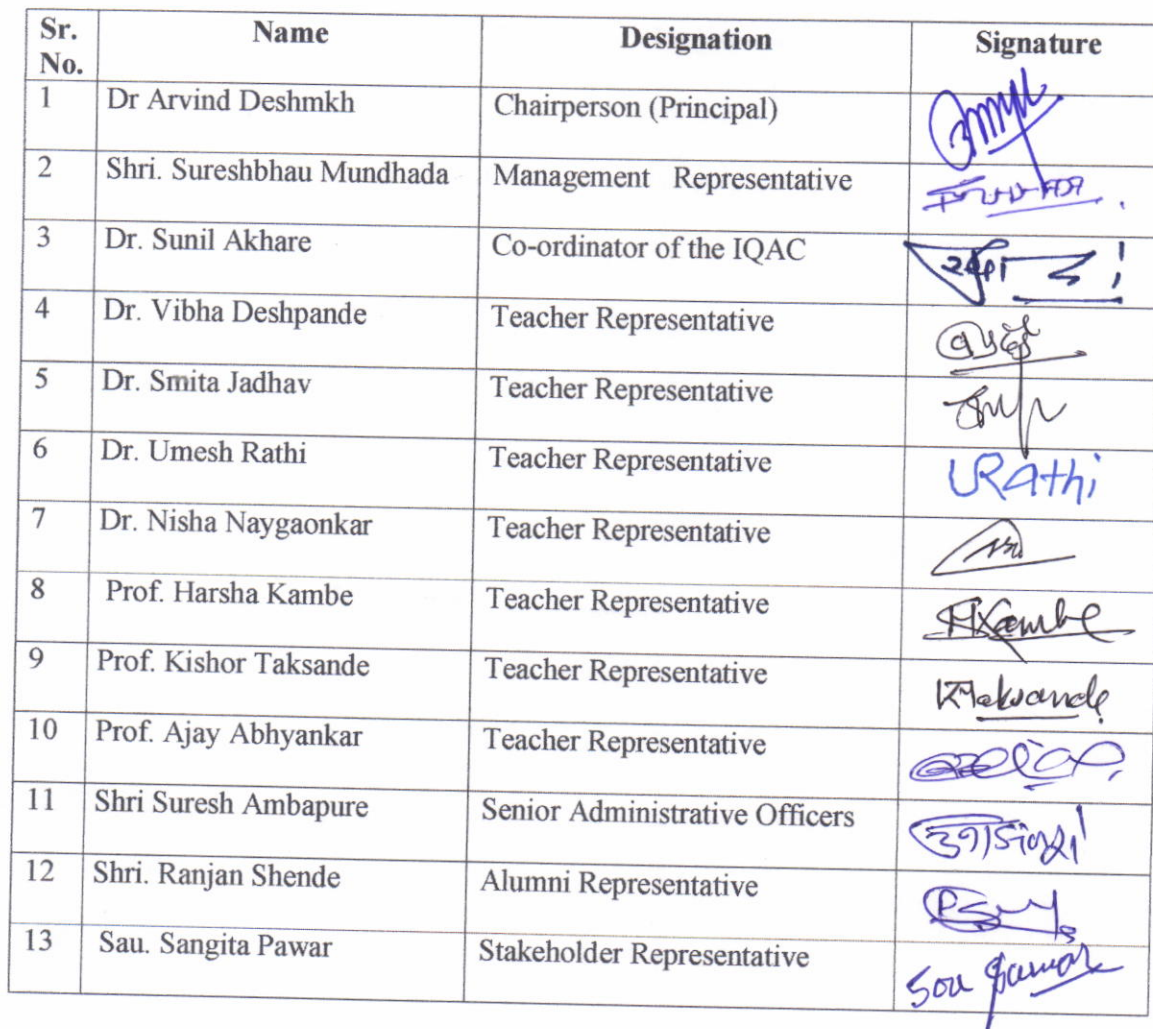 Sr. No. Name Designation Signature
1 Dr Arvind Deshmkh Chairperson (Principal)
2 Shri. Sureshbhau Mundhada Management Representative
3 Dr. Sunil Akhare Co-ordinator of the IQAC
4 Dr. Vibha Deshpande Teacher Representative
5 Dr. Smita Jadhav Teacher Representative
6 Dr. Umesh Rathi Teacher Representative URathi
7 Dr. Nisha Naygaonkar Teacher Representative
8 Prof. Harsha Kambe Teacher Representative HKambe
9 Prof. Kishor Taksande Teacher Representative KTaksande
10 Prof. Ajay Abhyankar Teacher Representative
11 Shri Suresh Ambapure Senior Administrative Officers
12 Shri. Ranjan Shende Alumni Representative
13 Sau. Sangita Pawar Stakeholder Representative Sou Pawar